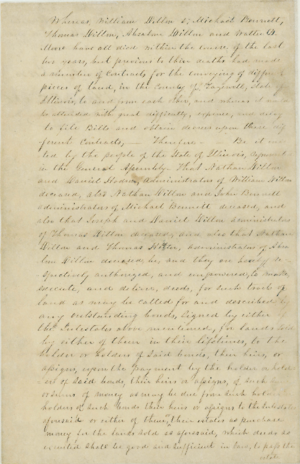 Whereas, William Hilton &, Michael Bennett,
Thomas Hilton, Absalom Hilton and Walter B.
have all died within the course of the last
two years, but previous to their deaths had made
a number of contracts for the conveying of different
pieces of land, in the county of Tazewell, State of
Illinois, to and from each other, and whereas it would
be attended with great difficulty, expense, and delay
to file Bills and obtain decrees upon these
contracts, — Therefore — Be it enac-
ted by the people of the State of Illinois, represented
in the General Assembly: That Nathan Hilton
and Daniel Hodson, administrators of William Hilton
deceased, also, Nathan Hilton and John Bennett
administrators of Michael Bennett deceased, and
also that Joseph and Daniel Hilton administrators
of Thomas Hilton deceased, and also that Nathan
Hilton and Thomas Hilton, administrators of Absa-
lom Hilton deceased, be, and they are hereby re-
spectively authorized, and empowered, to make
execute, and deliver, deeds, for such tracts of
land as may be called for and described by
any outstanding bonds, signed by either
the Intestates above mentioned, for lands sold
by either of them in their lifetimes, to the
holder or holders of said bonds, their heirs, or
assigns, upon the payment by the holder or hold-
ers of said bonds, their heirs or assigns, of such
of money as may be due from such holder
holders of such bonds their heirs or assigns to the
aforesaid or either of them, their estates as purchase
money for the lands sold as aforesaid, which deeds so
executed shall be good and sufficient in law, to pass the